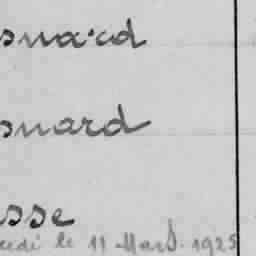 snard
snard
sse
credi le 11 Mars. 1925